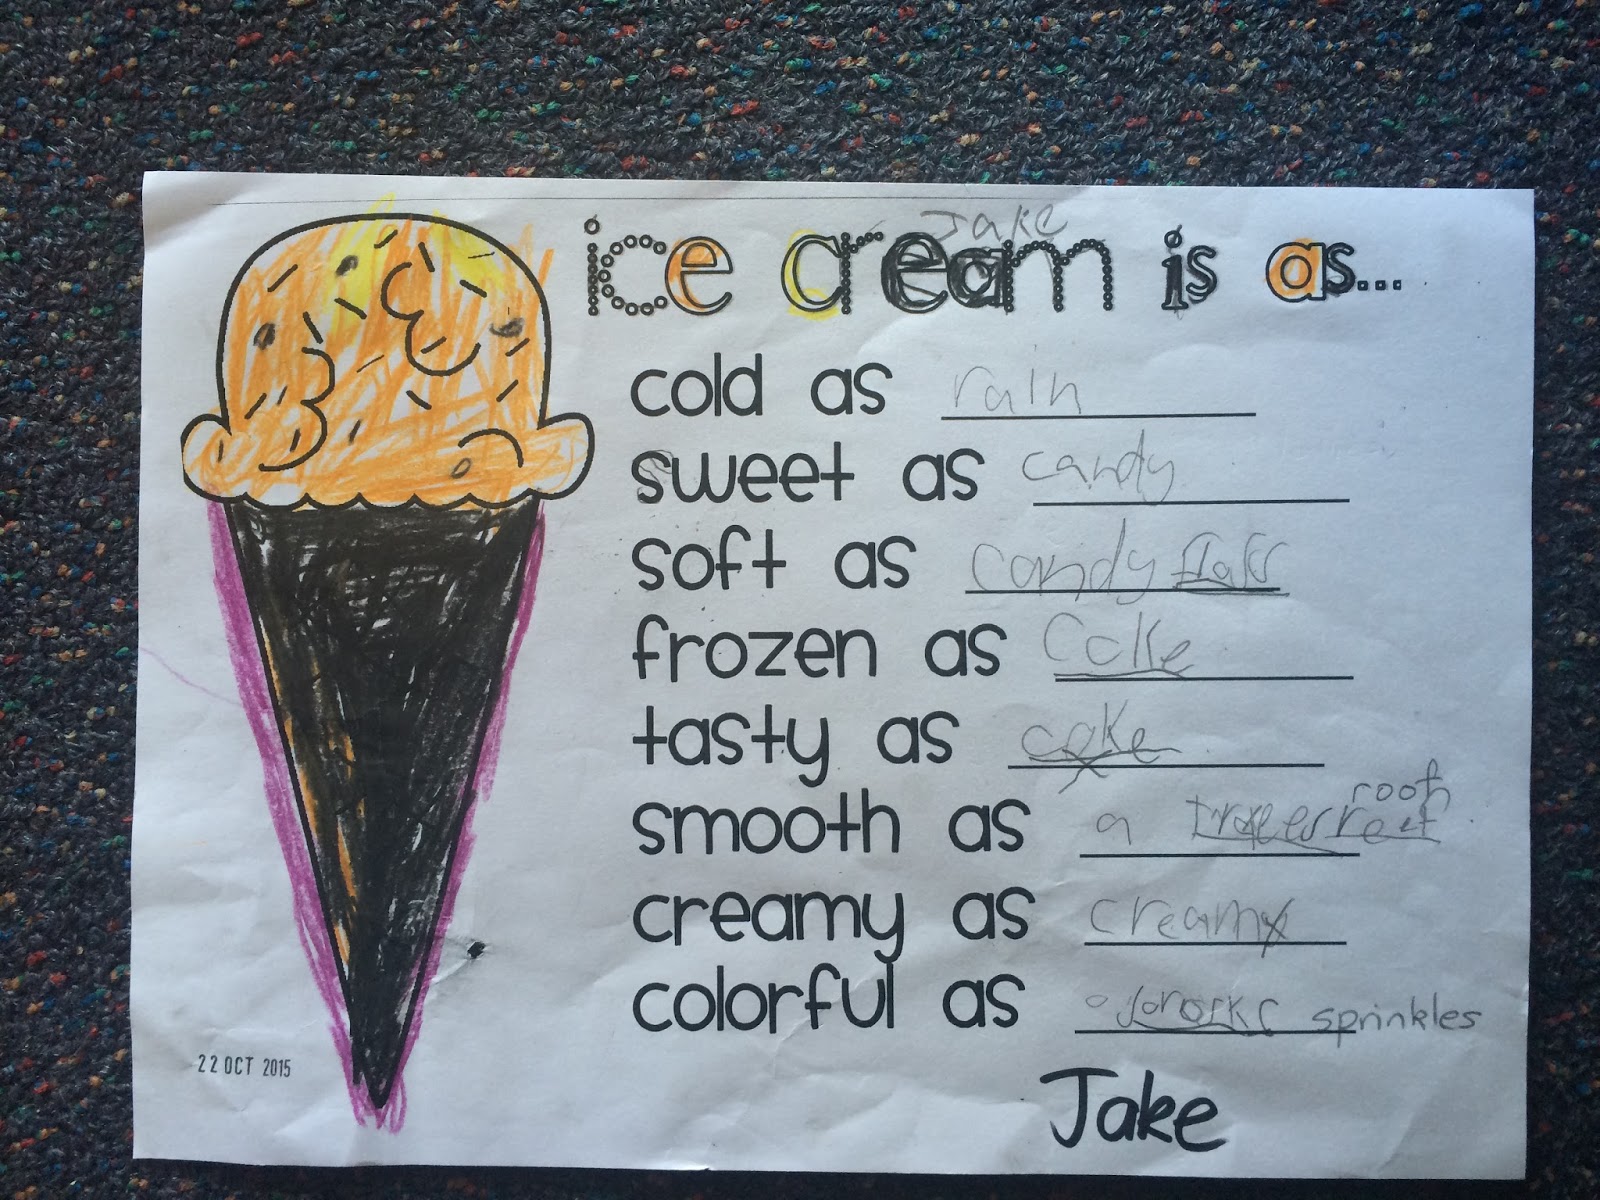 Jake
ice cream is as...
cold as rain
sweet as candy
soft as candy
frozen as Coke
tasty as coke
smooth as a roof
creamy as cream
colorful as sprinkles
22 OCT 2015
Jake